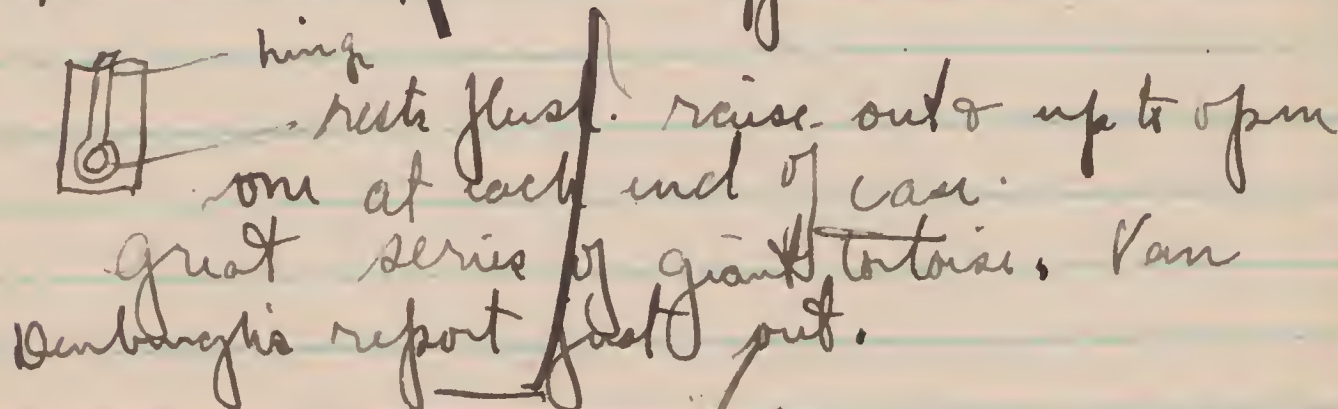 hing
rests flush. raise out & up to open
one at each end of case.
great series of giant tortoise. Van
Denburgh's report just out.